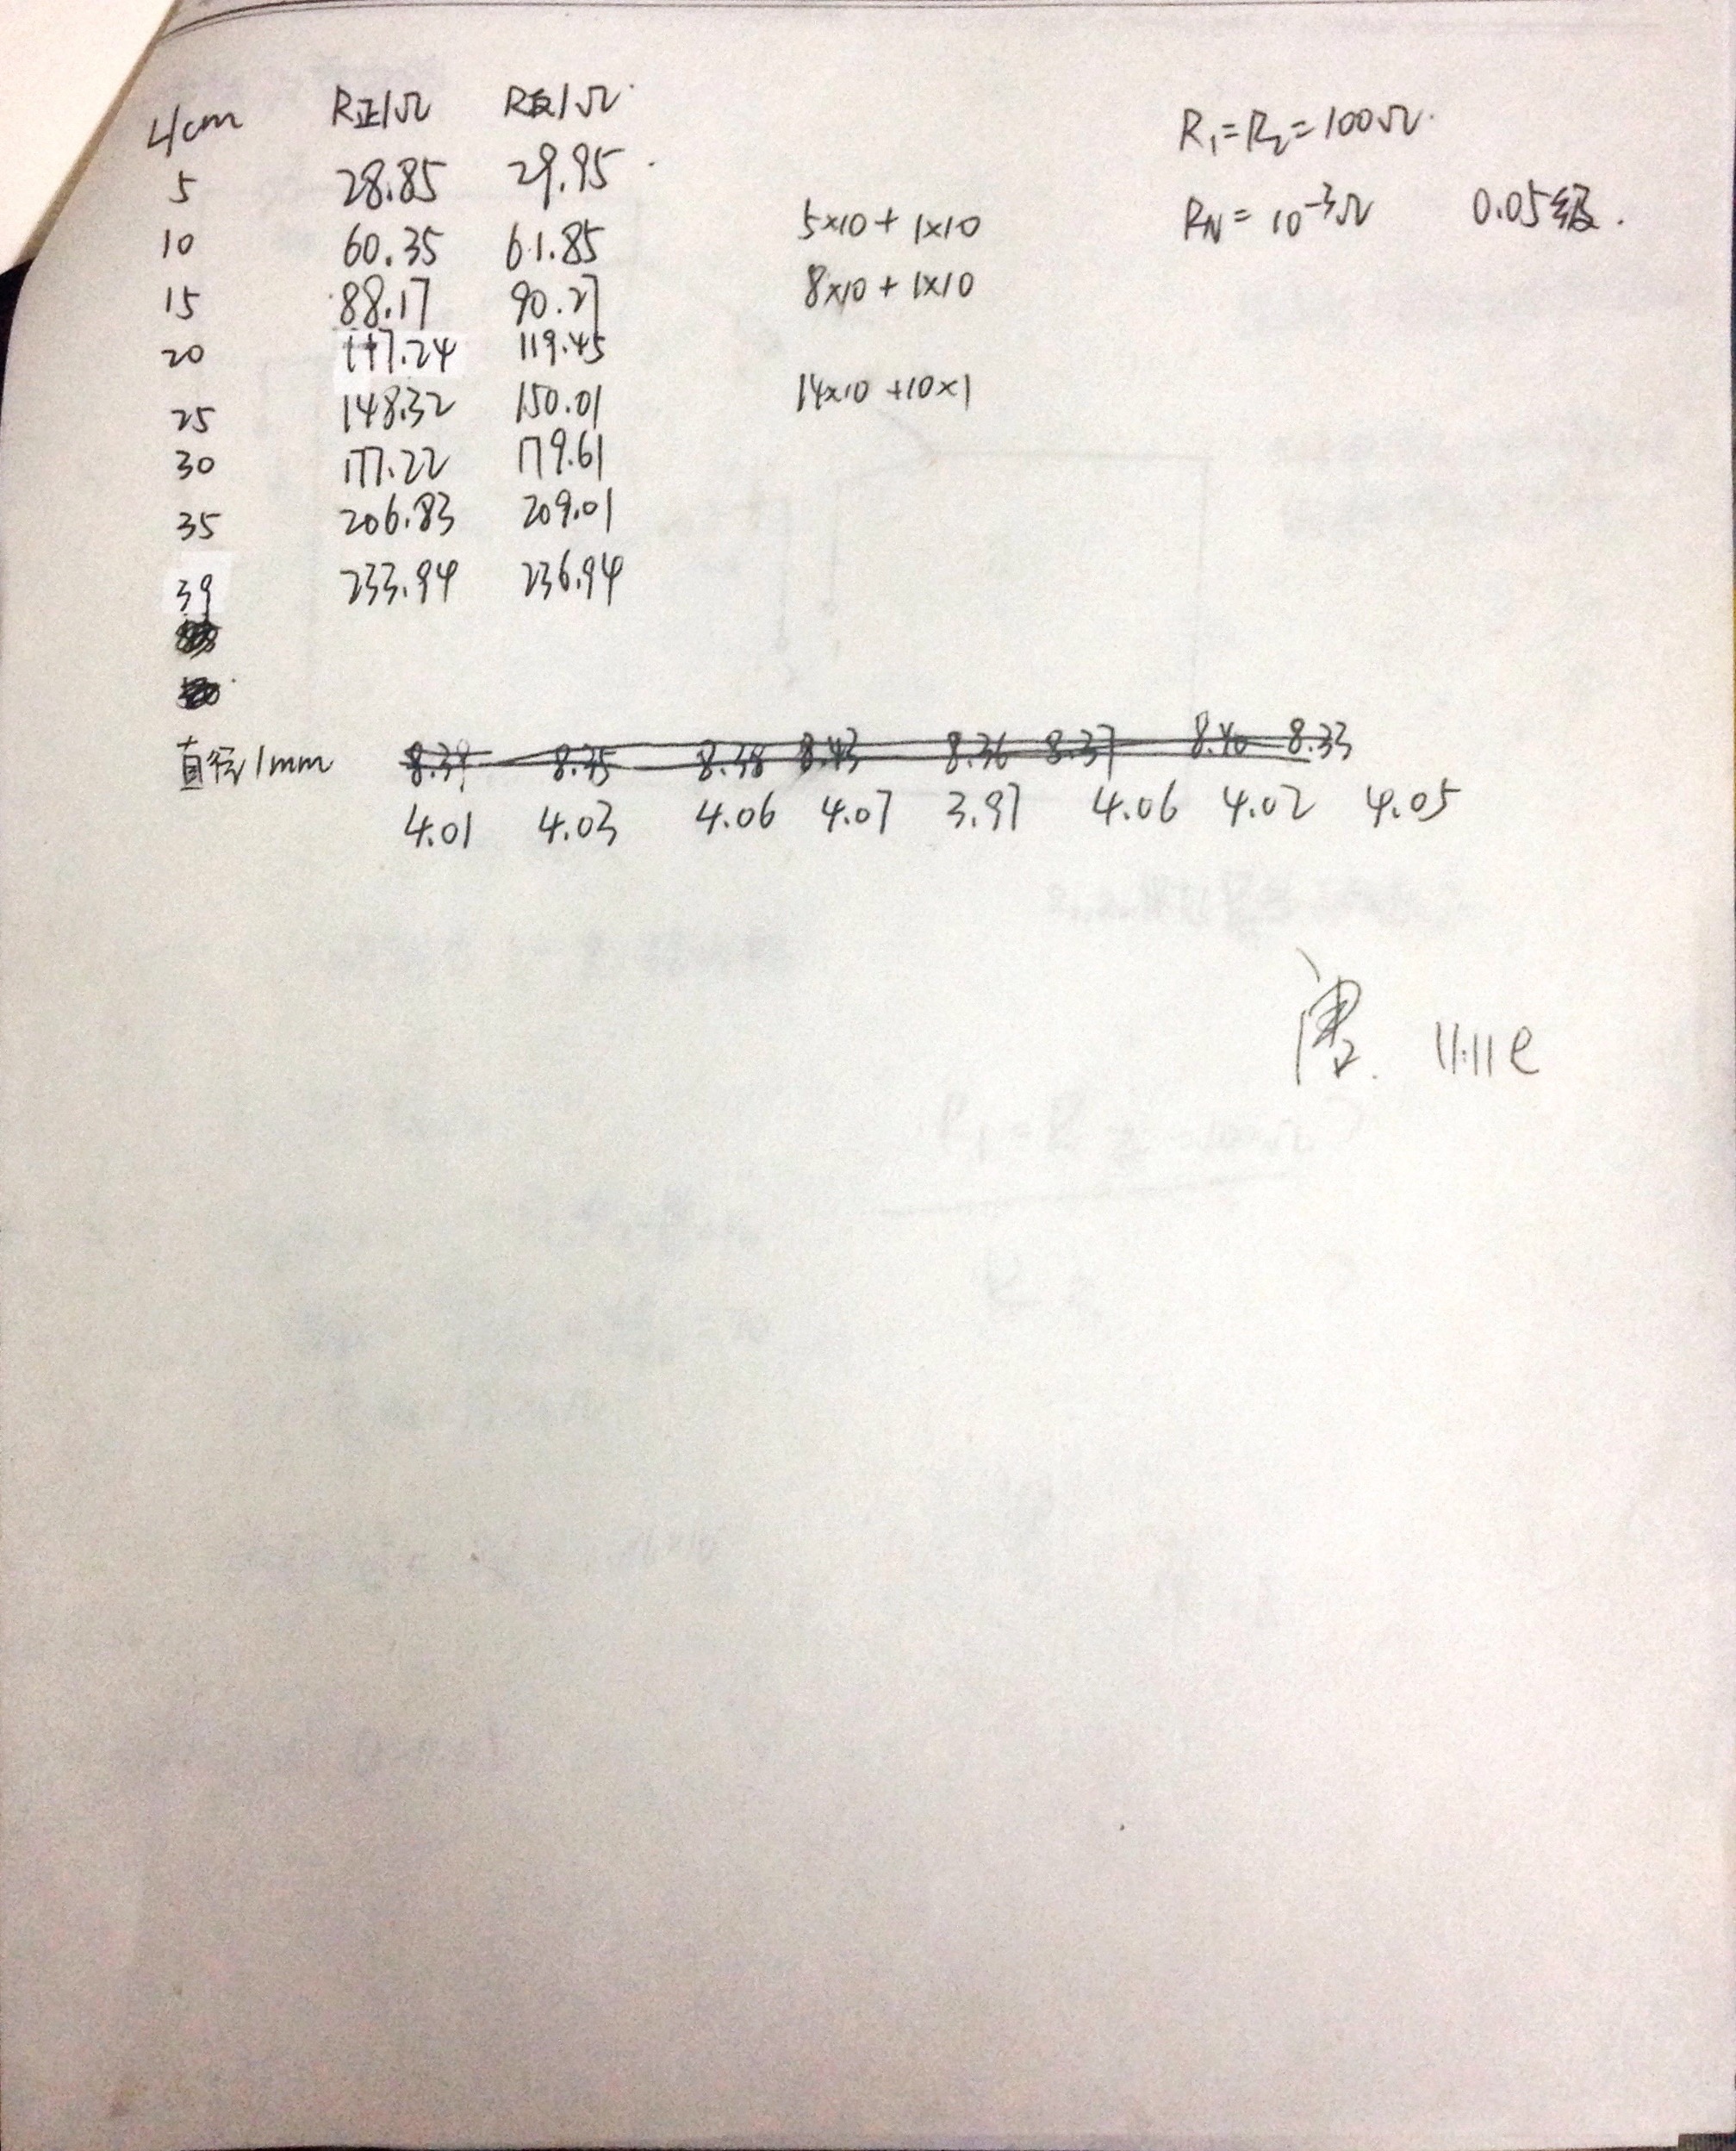 L/cm R正/Ω R反/Ω
5 28.85 29.95
10 60.35 61.85
15 88.17 90.27
20 117.24 119.45
25 148.32 150.01
30 177.22 179.61
35 206.83 209.01
39 233.94 236.94
5×10 + 1×10
8×10 + 1×10
14×10 + 10×1
R₁=R₂=100Ω.
R_N = 10⁻³Ω 0.05级.
直径/mm 8.39 8.35 8.38 8.43 8.36 8.37 8.40 8.33
4.01 4.03 4.06 4.07 3.97 4.06 4.02 4.05
唐. 11.11